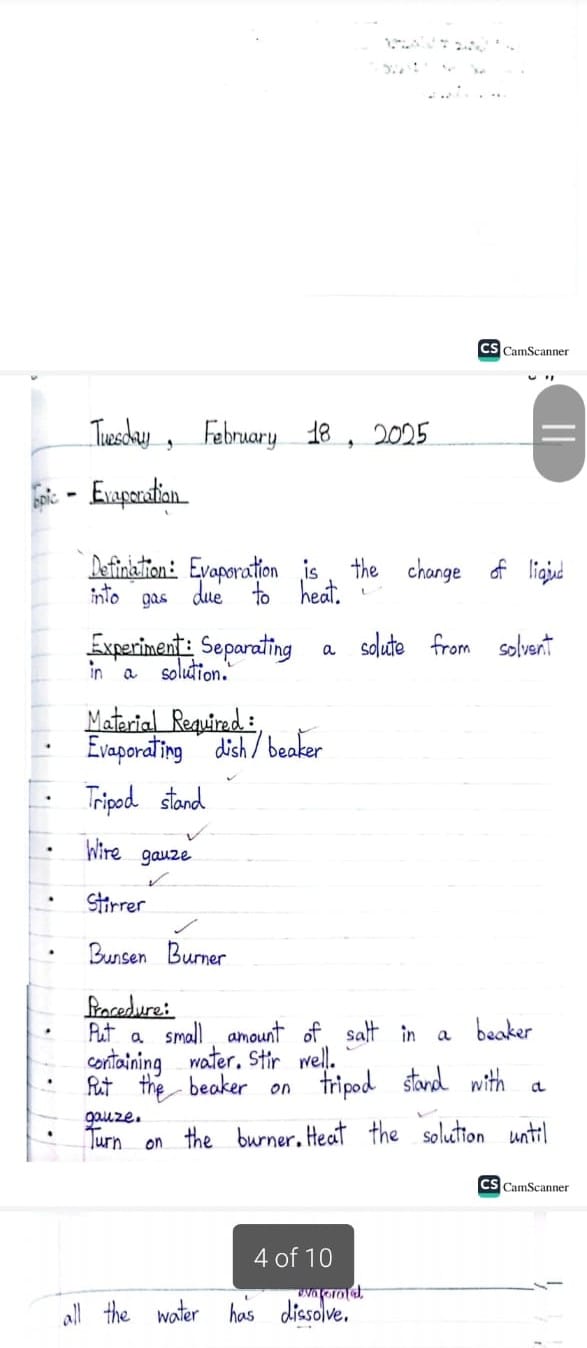 CS CamScanner
Tuesday, February 18, 2025
Topic - Evaporation
Defination: Evaporation is the change of liqiud
into gas due to heat.
Experiment: Separating a solute from solvent
in a solution.
Material Required:
• Evaporating dish/beaker
• Tripod stand
• Wire gauze
• Stirrer
• Bunsen Burner
Procedure:
• Put a small amount of salt in a beaker
containing water. Stir well.
• Put the beaker on tripod stand with a
gauze.
• Turn on the burner. Heat the solution until
CS CamScanner
4 of 10
evaporated.
all the water has dissolve.